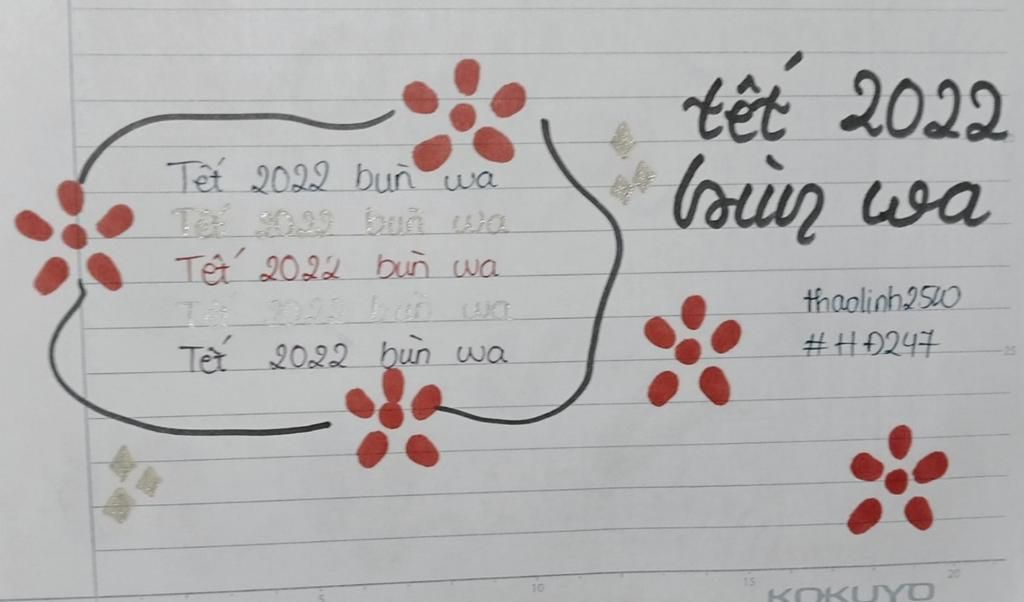 Tết 2022 buǹ wa
Tết 2022 buǹ wa
Tết 2022 buǹ wa
Tết 2022 buǹ wa
Tết 2022 bùn wa
tết 2022
bùn wa
thaolinh2540
#HĐ247
25
5
10
15
20
KOKUYO